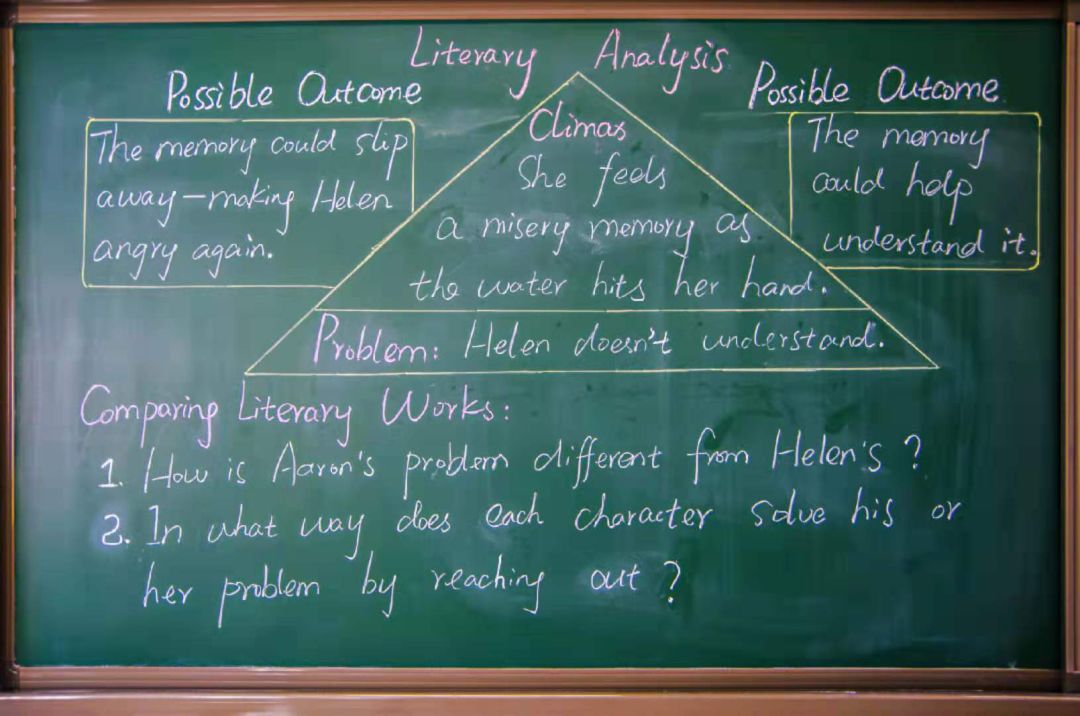 Literary Analysis
Possible Outcome
The memory could slip
away—making Helen
angry again.
Climax
She feels
a misery memory as
the water hits her hand.
Possible Outcome
The memory
could help
understand it.
Problem: Helen doesn't understand.
Comparing Literary Works:
1. How is Aaron's problem different from Helen's?
2. In what way does each character solve his or
her problem by reaching out?